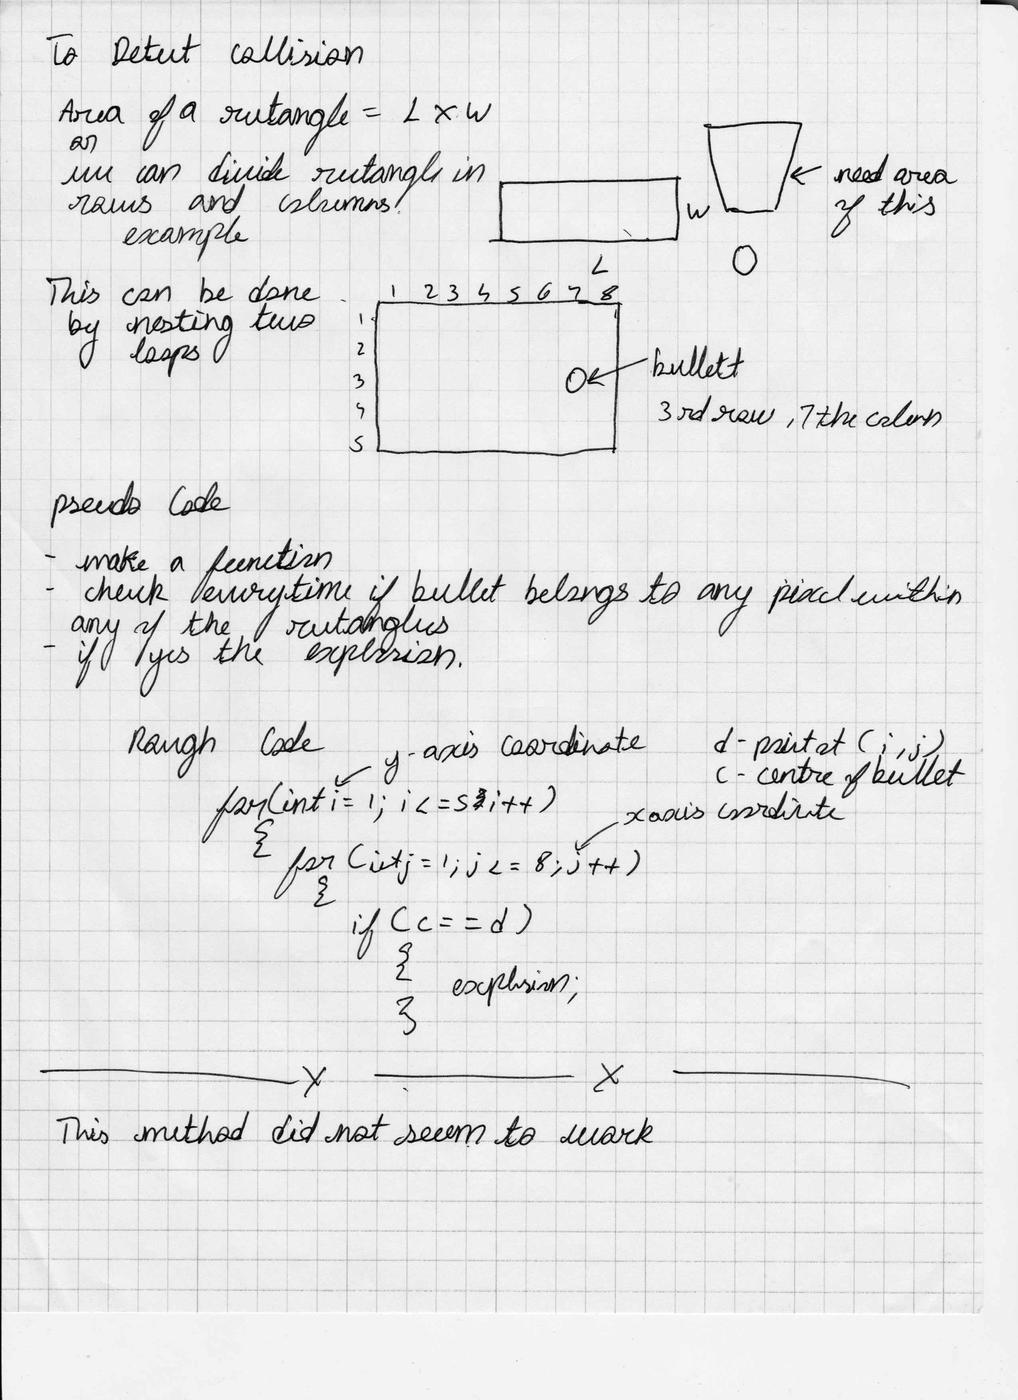 To Detect collision
Area of a rectangle = L x W
or
we can divide rectangle in
rows and columns.
example
W
L
need area
of this
This can be done
by nesting two
loops
1 2 3 4 5 6 7 8
1
2
3
4
5
bullett
3rd row, 7the column
pseudo Code
- make a function
- check everytime if bullet belongs to any pixel within
any of the rectangles
- if yes the explosion.
Rough Code
y-axis coordinate
d - point at (i,j)
c - centre of bullet
for(int i=1; i<=5; i++)
x axis coordinate
{
for (int j=1; j<= 8; j++)
{
if (c==d)
{
explosion;
}
X X
This method did not seem to work